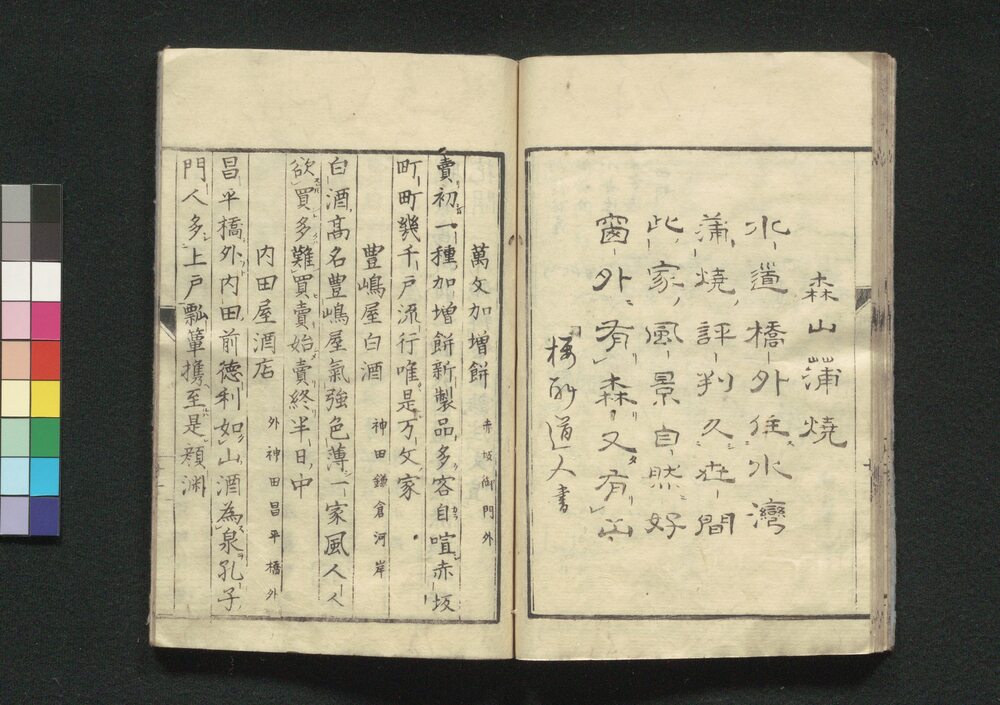 森山蒲焼
水道橋外住水灣
蒲焼評判久世間
此家風景自然好
窗外有森又有山
道人書
萬文加増餅 赤坂御門外
賣初一種加増餅新製品多客自喧赤坂
町町幾千戸流行唯是万文家
豊嶋屋白酒 神田鎌倉河岸
白酒高名豊嶋屋氣強色薄一家風人人
欲買多難買賣始賣終半日中
内田屋酒店 外神田昌平橋外
昌平橋外内田前徳利如山酒為泉孔子
門人多上戸瓢箪携至是顔渊